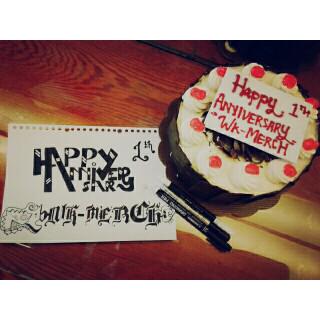 HAPPY 1th
ANNIVERS
WK-MERCH
Happy 1th
ANNIVERSARY
WK-MERCH